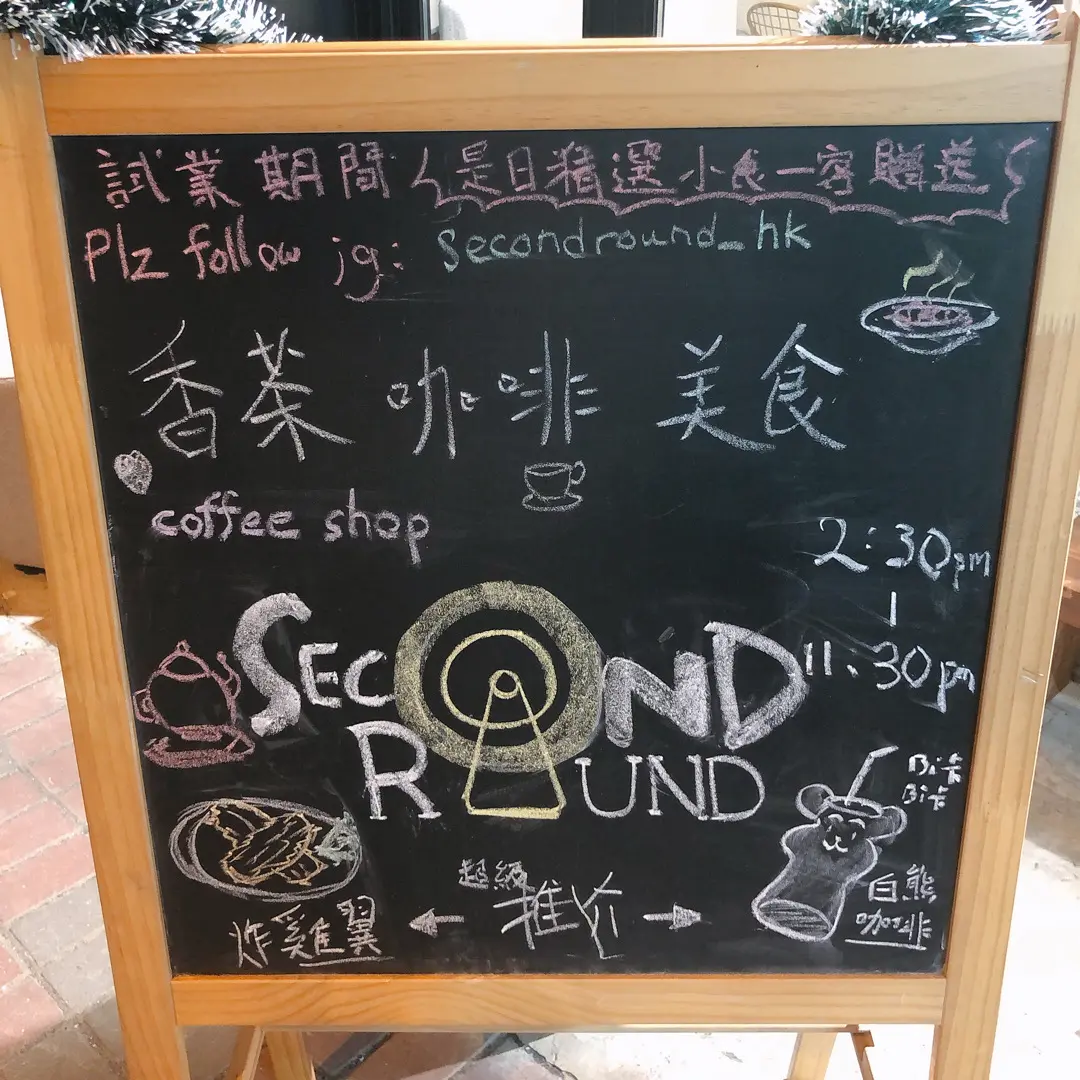 試業期間 是日精選小食一客贈送
Plz follow ig: secondround_hk
香茶 咖啡 美食
coffee shop
2:30pm
|
11.30pm
SECOND
ROUND
Bi卡
Bi卡
超級
推介
炸雞翼
白熊
咖啡